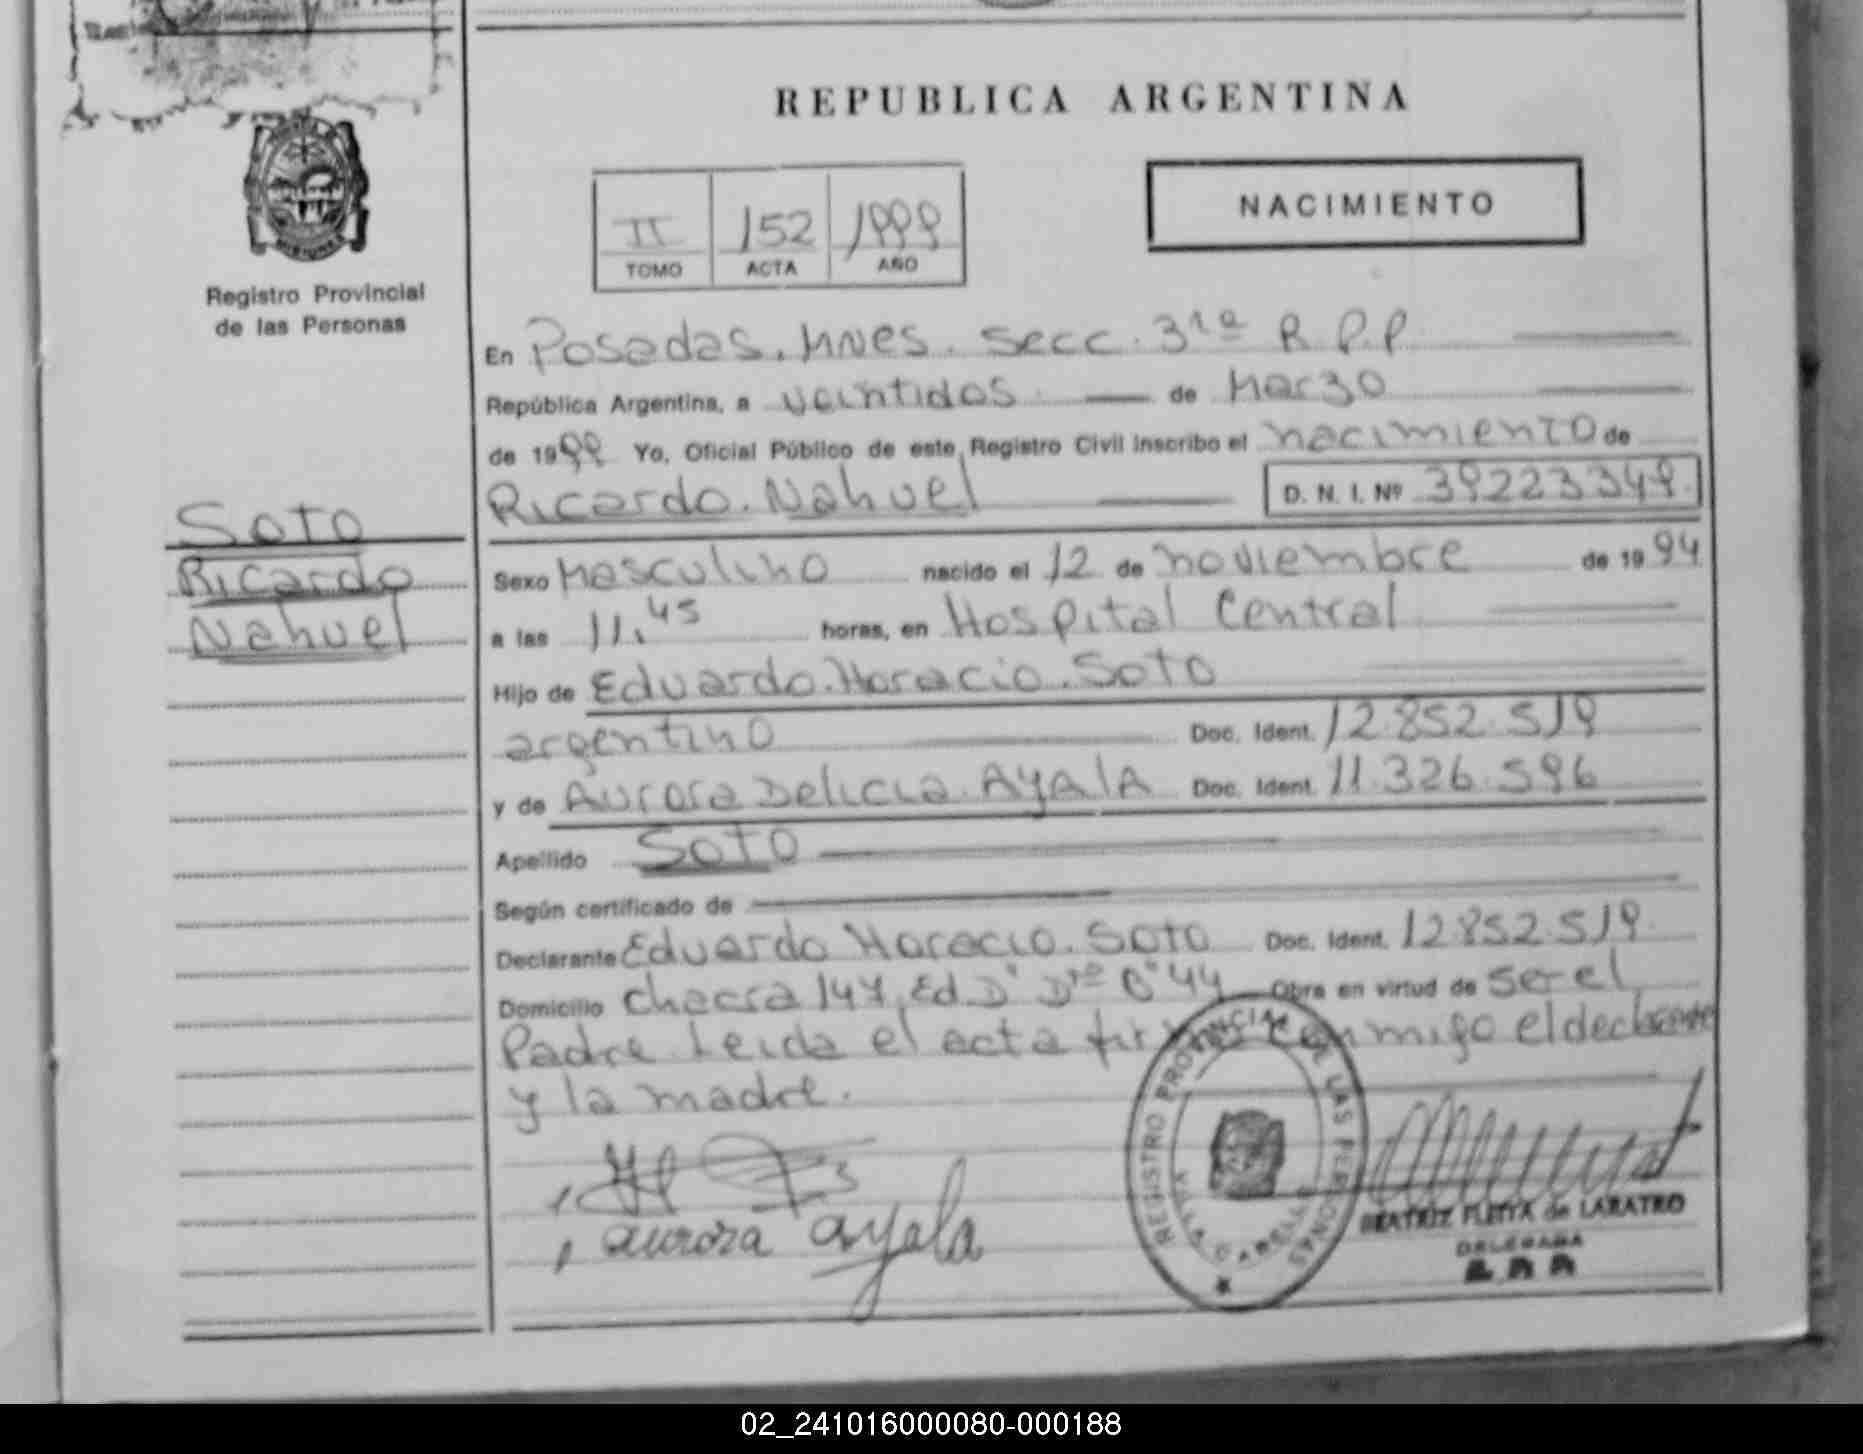 REPUBLICA ARGENTINA
NACIMIENTO
II 152 1999
TOMO ACTA AÑO
Registro Provincial
de las Personas
En Posadas. Mnes. Secc. 3ra R.P.P
República Argentina, a veintidos de Marzo
de 1999 Yo, Oficial Público de este Registro Civil inscribo el nacimiento de
Ricardo. Nahuel D. N. I. Nº 39223349.
Soto
Ricardo
Nahuel
Sexo Masculino nacido el 12 de noviembre de 1994
a las 11.45 horas, en Hospital Central
Hijo de Eduardo. Horacio. Soto
argentino Doc. Ident. 12.852.519
y de Aurora Delicia. Ayala Doc. Ident. 11.326.596
Apellido Soto
Según certificado de
Declarante Eduardo Horacio. Soto Doc. Ident. 12.852.519.
Domicilio Chacra 147 Ed D' Dto 44 Obra en virtud de ser el
Padre. Leida el acta conmigo el declarante
y la madre.
aurora ayala
REGISTRO PROVINCIAL DE LAS PERSONAS
BEATRIZ FLEITA de LABATRO
DELEGADA
02_241016000080-000188